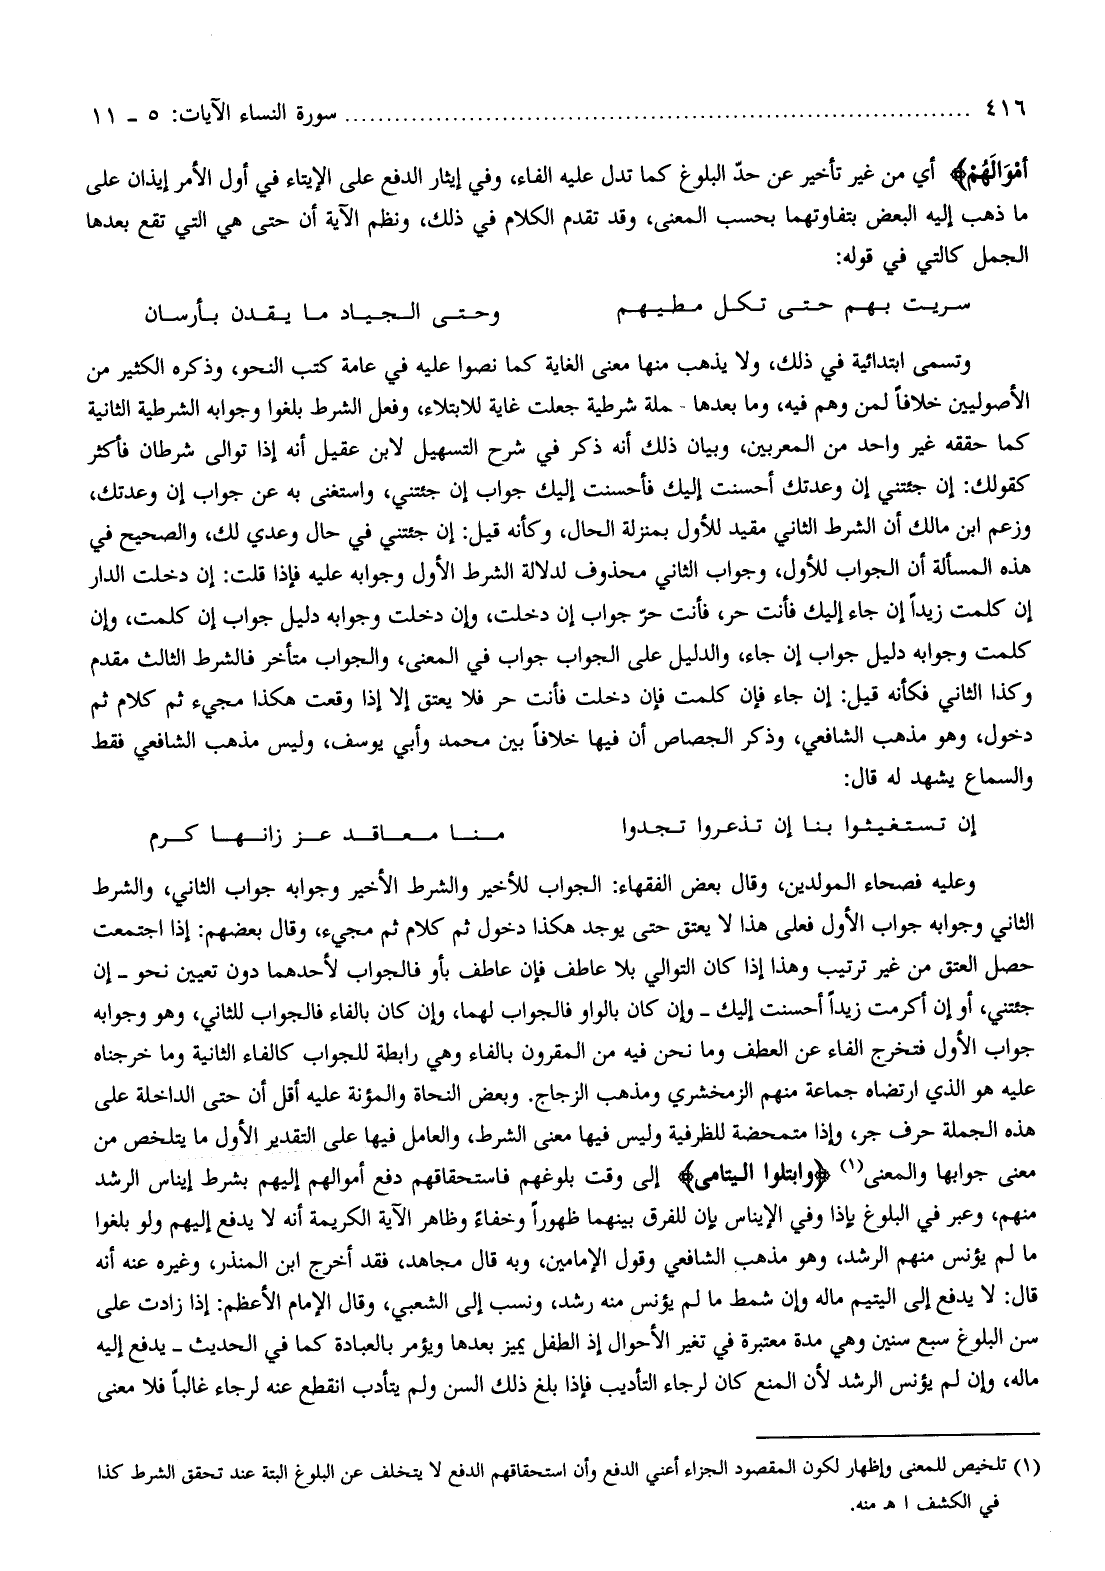 ٤١٦ ........................................................................... سورة النساء الآيات: ٥ ـ ١١
أَمْوَالَهُمْ﴾ أي من غير تأخير عن حدّ البلوغ كما تدل عليه الفاء، وفي إيثار الدفع على الإيتاء في أول الأمر إيذان على
ما ذهب إليه البعض بتفاوتهما بحسب المعنى، وقد تقدم الكلام في ذلك، ونظم الآية أن حتى هي التي تقع بعدها
الجمل كالتي في قوله:
سريت بهم حتى تكل مطيهم    وحتى الجياد ما يقدن بأرسان
وتسمى ابتدائية في ذلك، ولا يذهب منها معنى الغاية كما نصوا عليه في عامة كتب النحو، وذكره الكثير من
الأصوليين خلافاً لمن وهم فيه، وما بعدها ـ ملة شرطية جعلت غاية للابتلاء، وفعل الشرط بلغوا وجوابه الشرطية الثانية
كما حققه غير واحد من المعربين، وبيان ذلك أنه ذكر في شرح التسهيل لابن عقيل أنه إذا توالى شرطان فأكثر
كقولك: إن جئتني إن وعدتك أحسنت إليك فأحسنت إليك جواب إن جئتني، واستغنى به عن جواب إن وعدتك،
وزعم ابن مالك أن الشرط الثاني مقيد للأول بمنزلة الحال، وكأنه قيل: إن جئتني في حال وعدي لك، والصحيح في
هذه المسألة أن الجواب للأول، وجواب الثاني محذوف لدلالة الشرط الأول وجوابه عليه فإذا قلت: إن دخلت الدار
إن كلمت زيداً إن جاء إليك فأنت حر، فأنت حرّ جواب إن دخلت، وإن دخلت وجوابه دليل جواب إن كلمت، وإن
كلمت وجوابه دليل جواب إن جاء، والدليل على الجواب جواب في المعنى، والجواب متأخر فالشرط الثالث مقدم
وكذا الثاني فكأنه قيل: إن جاء فإن كلمت فإن دخلت فأنت حر فلا يعتق إلا إذا وقعت هكذا مجيء ثم كلام ثم
دخول، وهو مذهب الشافعي، وذكر الجصاص أن فيها خلافاً بين محمد وأبي يوسف، وليس مذهب الشافعي فقط
والسماع يشهد له قال:
إن تستغيثوا بنا إن تذعروا تجدوا    منا معاقد عز زانها كرم
وعليه فصحاء المولدين، وقال بعض الفقهاء: الجواب للأخير والشرط الأخير وجوابه جواب الثاني، والشرط
الثاني وجوابه جواب الأول فعلى هذا لا يعتق حتى يوجد هكذا دخول ثم كلام ثم مجيء، وقال بعضهم: إذا اجتمعت
حصل العتق من غير ترتيب وهذا إذا كان التوالي بلا عاطف فإن عاطف بأو فالجواب لأحدهما دون تعيين نحو ـ إن
جئتني، أو إن أكرمت زيداً أحسنت إليك ـ وإن كان بالواو فالجواب لهما، وإن كان بالفاء فالجواب للثاني، وهو وجوابه
جواب الأول فتخرج الفاء عن العطف وما نحن فيه من المقرون بالفاء وهي رابطة للجواب كالفاء الثانية وما خرجناه
عليه هو الذي ارتضاه جماعة منهم الزمخشري ومذهب الزجاج. وبعض النحاة والمؤنة عليه أقل أن حتى الداخلة على
هذه الجملة حرف جر، وإذا متمحضة للظرفية وليس فيها معنى الشرط، والعامل فيها على التقدير الأول ما يتلخص من
معنى جوابها والمعنى(١) ﴿وابتلوا اليتامى﴾ إلى وقت بلوغهم فاستحقاقهم دفع أموالهم إليهم بشرط إيناس الرشد
منهم، وعبر في البلوغ بإذا وفي الإيناس بإن للفرق بينهما ظهوراً وخفاءً وظاهر الآية الكريمة أنه لا يدفع إليهم ولو بلغوا
ما لم يؤنس منهم الرشد، وهو مذهب الشافعي وقول الإمامين، وبه قال مجاهد، فقد أخرج ابن المنذر، وغيره عنه أنه
قال: لا يدفع إلى اليتيم ماله وإن شمط ما لم يؤنس منه رشد، ونسب إلى الشعبي، وقال الإمام الأعظم: إذا زادت على
سن البلوغ سبع سنين وهي مدة معتبرة في تغير الأحوال إذ الطفل يميز بعدها ويؤمر بالعبادة كما في الحديث ـ يدفع إليه
ماله، وإن لم يؤنس الرشد لأن المنع كان لرجاء التأديب فإذا بلغ ذلك السن ولم يتأدب انقطع عنه لرجاء غالباً فلا معنى
(١) تلخيص للمعنى وإظهار لكون المقصود الجزاء أعني الدفع وأن استحقاقهم الدفع لا يتخلف عن البلوغ البتة عند تحقق الشرط كذا
في الكشف ا هـ منه.